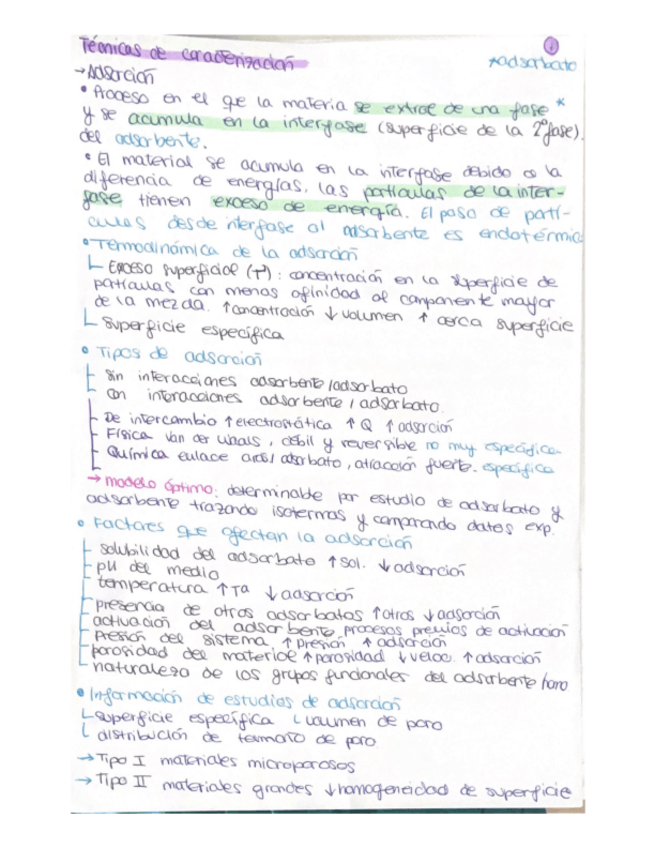 Técnicas de caracterización
1
*adsorbato
→ Adsorción
• Proceso en el que la materia se extrae de una fase *
y se acumula en la interfase (superficie de la 2ª fase)
del adsorbente.
• El material se acumula en la interfase debido a la
diferencia de energías, las partículas de la inter-
fase tienen exceso de energía. El paso de partí-
culas desde interfase al adsorbente es endotérmic
• Termodinámica de la adsorción
Exceso superficial (T): concentración en la superficie de
partículas con menos afinidad al componente mayor
de la mezcla. ↑concentración ↓volumen ↑ cerca superficie
Superficie específica
• Tipos de adsorción
Sin interacciones adsorbente/adsorbato
Con interacciones adsorbente/adsorbato.
De intercambio ↑electrostática ↑Q ↑adsorción
Física van der Waals, débil y reversible no muy específica
Química enlace adsorbato, atracción fuerte. específica
→ modelo óptimo: determinable por estudio de adsorbato y
adsorbente trazando isotermas y comparando datos exp.
• Factores que afectan la adsorción
solubilidad del adsorbato ↑sol. ↓adsorción
pH del medio
temperatura ↑Ta ↓adsorción
presencia de otros adsorbatos ↑otros ↓adsorción
activación del adsorbente procesos previos de activación
Presión del sistema ↑presión ↑adsorción
porosidad del material ↑porosidad ↓veloc. ↑adsorción
naturaleza de los grupos funcionales del adsorbente
• Información de estudios de adsorción
superficie específica volumen de poro
distribución de tamaño de poro
→ Tipo I materiales microporosos
→ Tipo II materiales grandes ↓homogeneidad de superficie